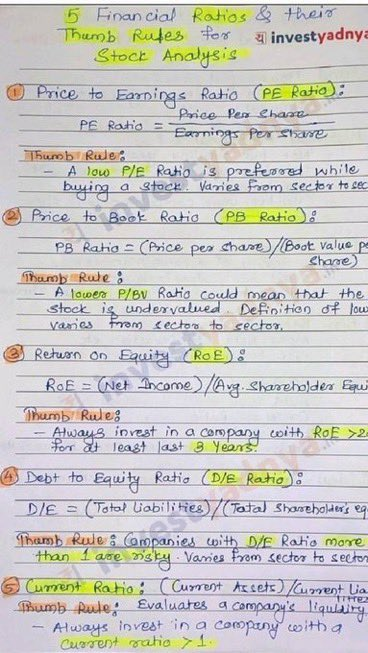 5 Financial Ratios & their
Thumb Rules for
investyadnya
Stock Analysis
① Price to Earnings Ratio (PE Ratio):
PE Ratio = Price Per Share
Earnings Per Share
Thumb Rule:
- A low P/E Ratio is preferred while
buying a stock. Varies from sector to sec
② Price to Book Ratio (PB Ratio):
PB Ratio = (Price per share)/(Book value pe
share)
Thumb Rule:
- A lower P/BV Ratio could mean that the
stock is undervalued. Definition of low
varies from sector to sector.
③ Return on Equity (RoE):
RoE = (Net Income)/(Avg. Shareholder Equi
Thumb Rule:
- Always invest in a company with RoE >2
for at least last 3 Years.
④ Debt to Equity Ratio (D/E Ratio):
D/E = (Total Liabilities)/(Total Shareholder's eq
Thumb Rule: Companies with D/E Ratio more
than 1 are risky. Varies from sector to sector
⑤ Current Ratio: (Current Assets)/(Current Lia
Thumb Rule: Evaluates a company's liquidity
- Always invest in a company with a
current ratio >1.